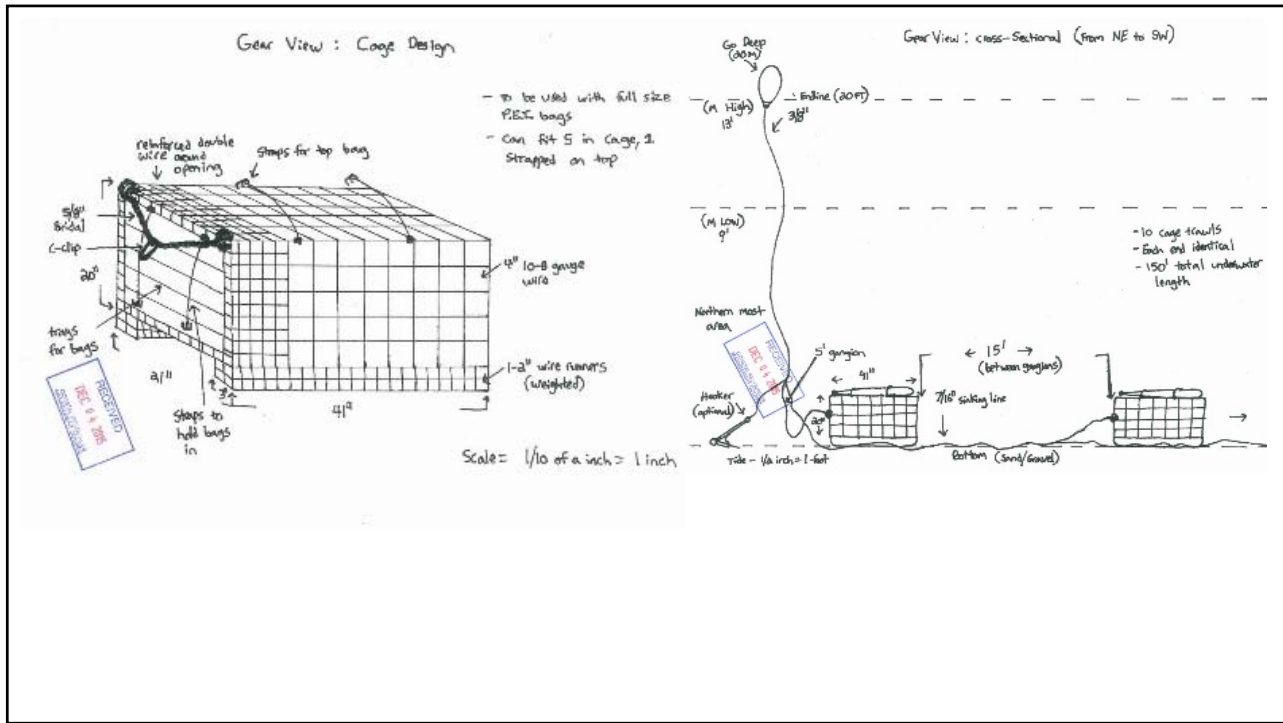 Gear View : Cage Design
- To be used with full size
P.E.I. bags
- Can fit 5 in cage, 1
strapped on top
reinforced double
wire around
opening
straps for top bag
5/8"
Bridal
C-clip
20"
trays
for bags
21"
3"
41"
straps to
hold bags
in
4" 10-8 gauge
wire
1-2" wire runners
(weighted)
Scale = 1/10 of a inch = 1 inch
RECEIVED
DEC 04 2015
Gear View : cross-Sectional (From NE to SW)
Go Deep
(20M)
Endline (20FT)
3/8"
(M High)
13'
(M LOW)
9'
- 10 cage trawls
- Each end identical
- 150' total underwater
length
Northern most
area
RECEIVED
DEC 04 2015
5' gangion
Hooker
(optional)
41"
20"
← 15' →
(between gangions)
7/16" sinking line
Tide - 1/2 inch = 1-foot
Bottom (Sand/Gravel)